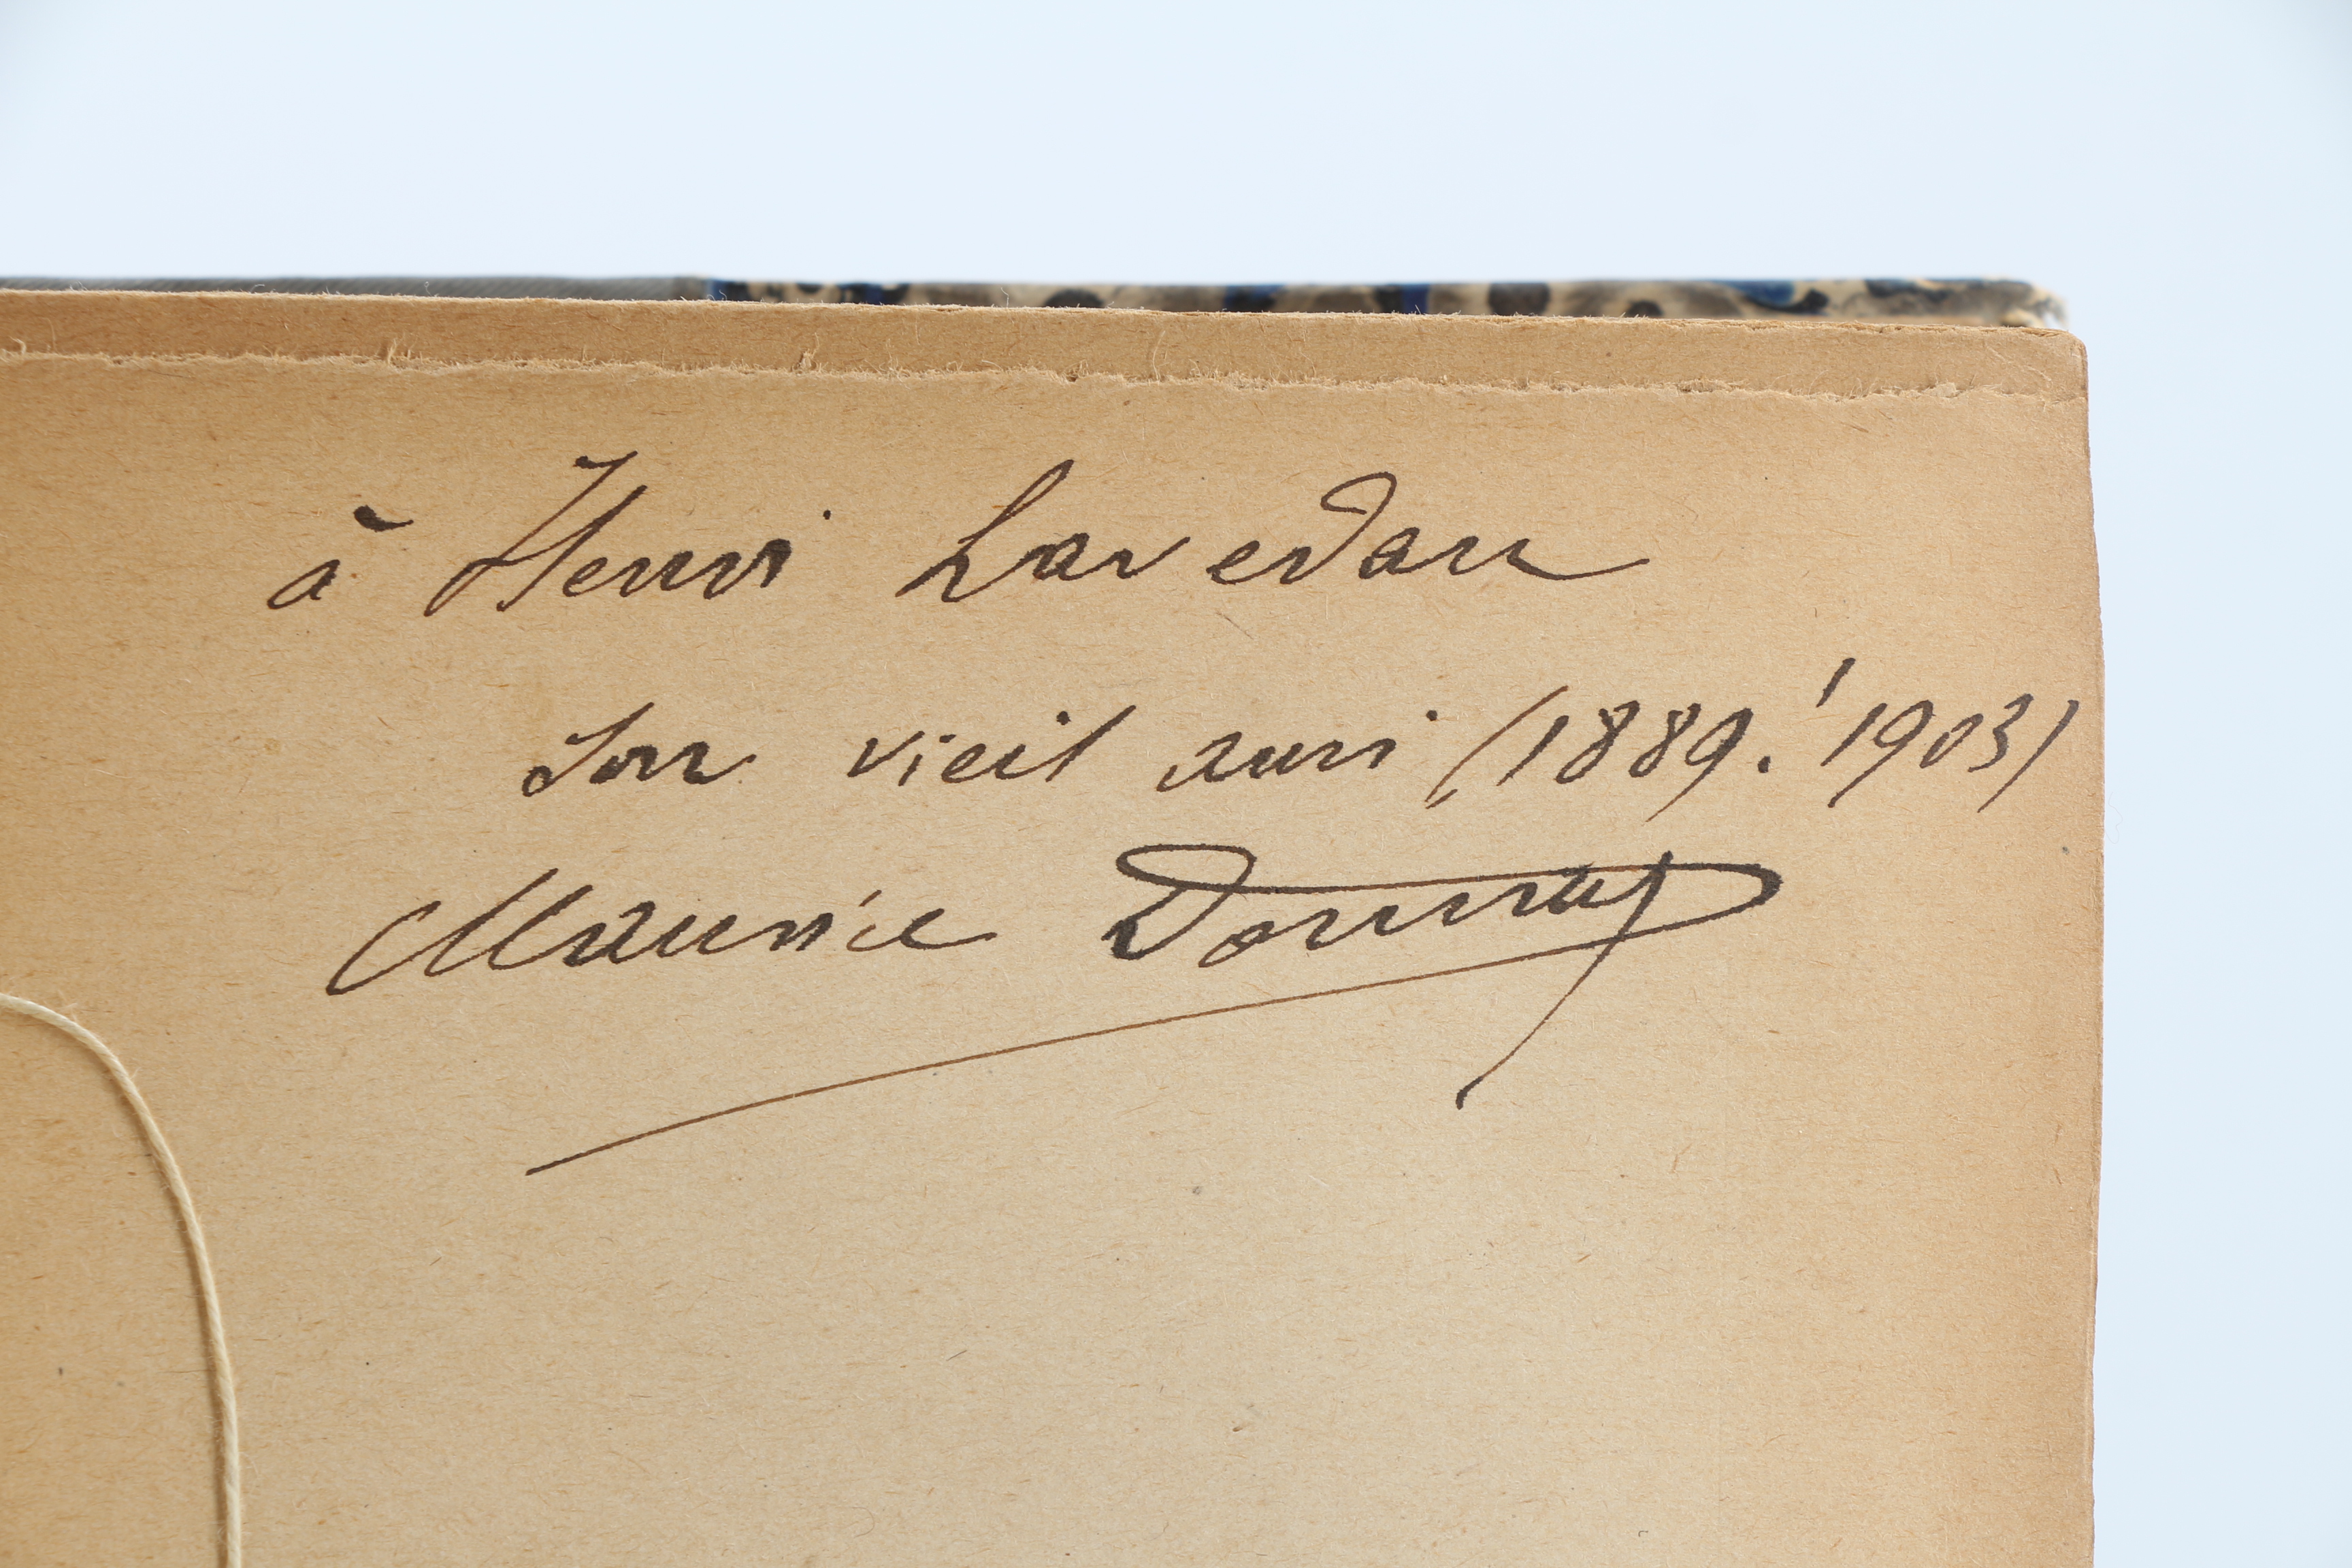 à Henri Lavedan
son vieil ami (1889.'1903)
Maurice Donnay